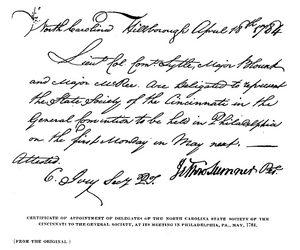 North Carolina Hillsborough April 16th 1784
Lieut. Col. Comt. Lytle, Major Blount
and Major McRee. Are Delegated to represent
the State Society of the Cincinnati in the
General Convention to be held in Philadelphia
on the first Monday in May next. —
Attested.
Jethro Sumner
CERTIFICATE OF APPOINTMENT OF DELEGATES OF THE NORTH CAROLINA STATE SOCIETY OF THE
CINCINNATI TO THE GENERAL SOCIETY, AT ITS MEETING IN PHILADELPHIA, PA., MAY, 1784.
[FROM THE ORIGINAL.]